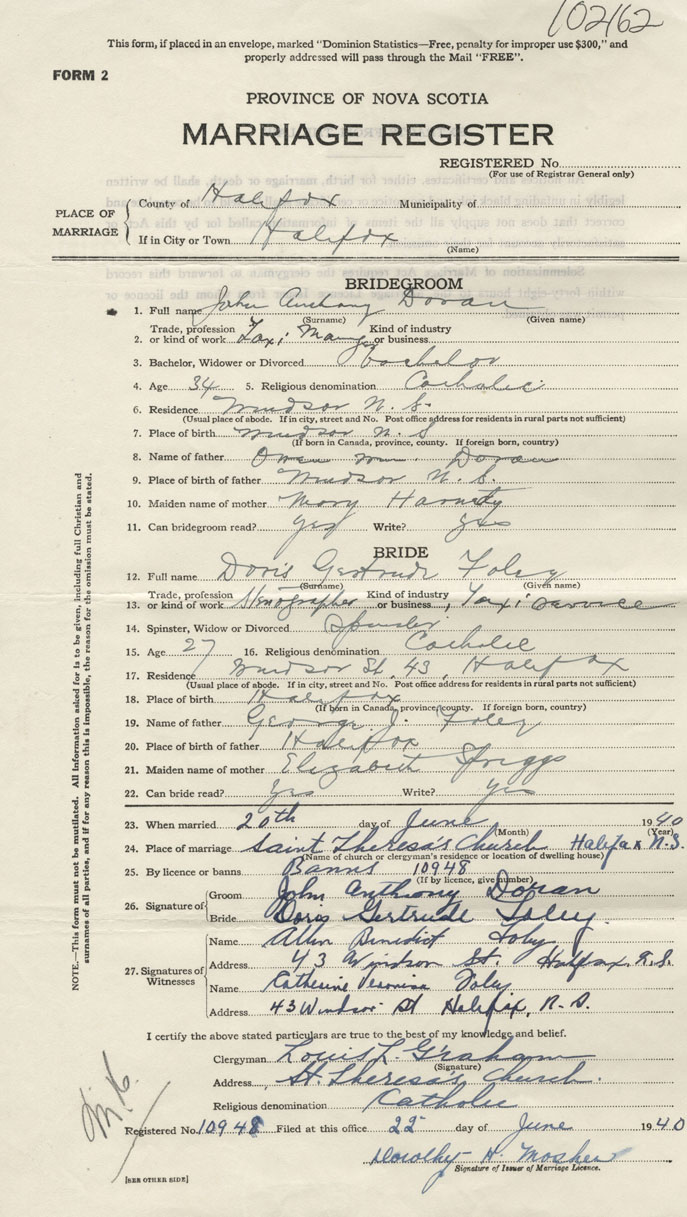 102162
This form, if placed in an envelope, marked "Dominion Statistics—Free, penalty for improper use $300," and
properly addressed will pass through the Mail "FREE".
FORM 2
PROVINCE OF NOVA SCOTIA
MARRIAGE REGISTER
REGISTERED No.
(For use of Registrar General only)
PLACE OF MARRIAGE
County of Halifax Municipality of
If in City or Town Halifax
(Name)
BRIDEGROOM
1. Full name John Anthony Doran
(Surname) (Given name)
Trade, profession Kind of industry
2. or kind of work Taxi Mang or business
3. Bachelor, Widower or Divorced Bachelor
4. Age 34 5. Religious denomination Catholic
6. Residence Windsor N. S.
(Usual place of abode. If in city, street and No. Post office address for residents in rural parts not sufficient)
7. Place of birth Windsor N. S
(If born in Canada, province, county. If foreign born, country)
8. Name of father Owen Wm. Doran
9. Place of birth of father Windsor N. S.
10. Maiden name of mother Mary Harnety
11. Can bridegroom read? yes Write? yes
BRIDE
12. Full name Doris Gertrude Foley
(Surname) (Given name)
Trade, profession Kind of industry
13. or kind of work Stenographer or business Taxi service
14. Spinster, Widow or Divorced Spinster
15. Age 27 16. Religious denomination Catholic
17. Residence Windsor St, 43, Halifax
(Usual place of abode. If in city, street and No. Post office address for residents in rural parts not sufficient)
18. Place of birth Halifax
(If born in Canada, province, county. If foreign born, country)
19. Name of father George J. Foley
20. Place of birth of father Halifax
21. Maiden name of mother Elizabeth Spriggs
22. Can bride read? Yes Write? yes
23. When married 20th day of June 1940
(Month) (Year)
24. Place of marriage Saint Theresa's Church Halifax N.S.
(Name of church or clergyman's residence or location of dwelling house)
25. By licence or banns Banns 10948
(If by licence, give number)
26. Signature of
Groom John Anthony Doran
Bride Doris Gertrude Foley.
27. Signatures of Witnesses
Name Allen Benedict Foley
Address 43 Windsor St. Halifax, N.S.
Name Catherine Veronica Foley
Address 43 Windsor St Halifax, N. S.
I certify the above stated particulars are true to the best of my knowledge and belief.
Clergyman Louis L. Graham
(Signature)
Address St. Theresa's Church.
Religious denomination Catholic
Registered No. 10948 Filed at this office 22 day of June 1940
Dorothy H. Mosher
Signature of Issuer of Marriage Licence.
[SEE OTHER SIDE]
NOTE.—This form must not be mutilated. All Information asked for is to be given, including full Christian and
surnames of all parties, and if for any reason this is impossible, the reason for the omission must be stated.